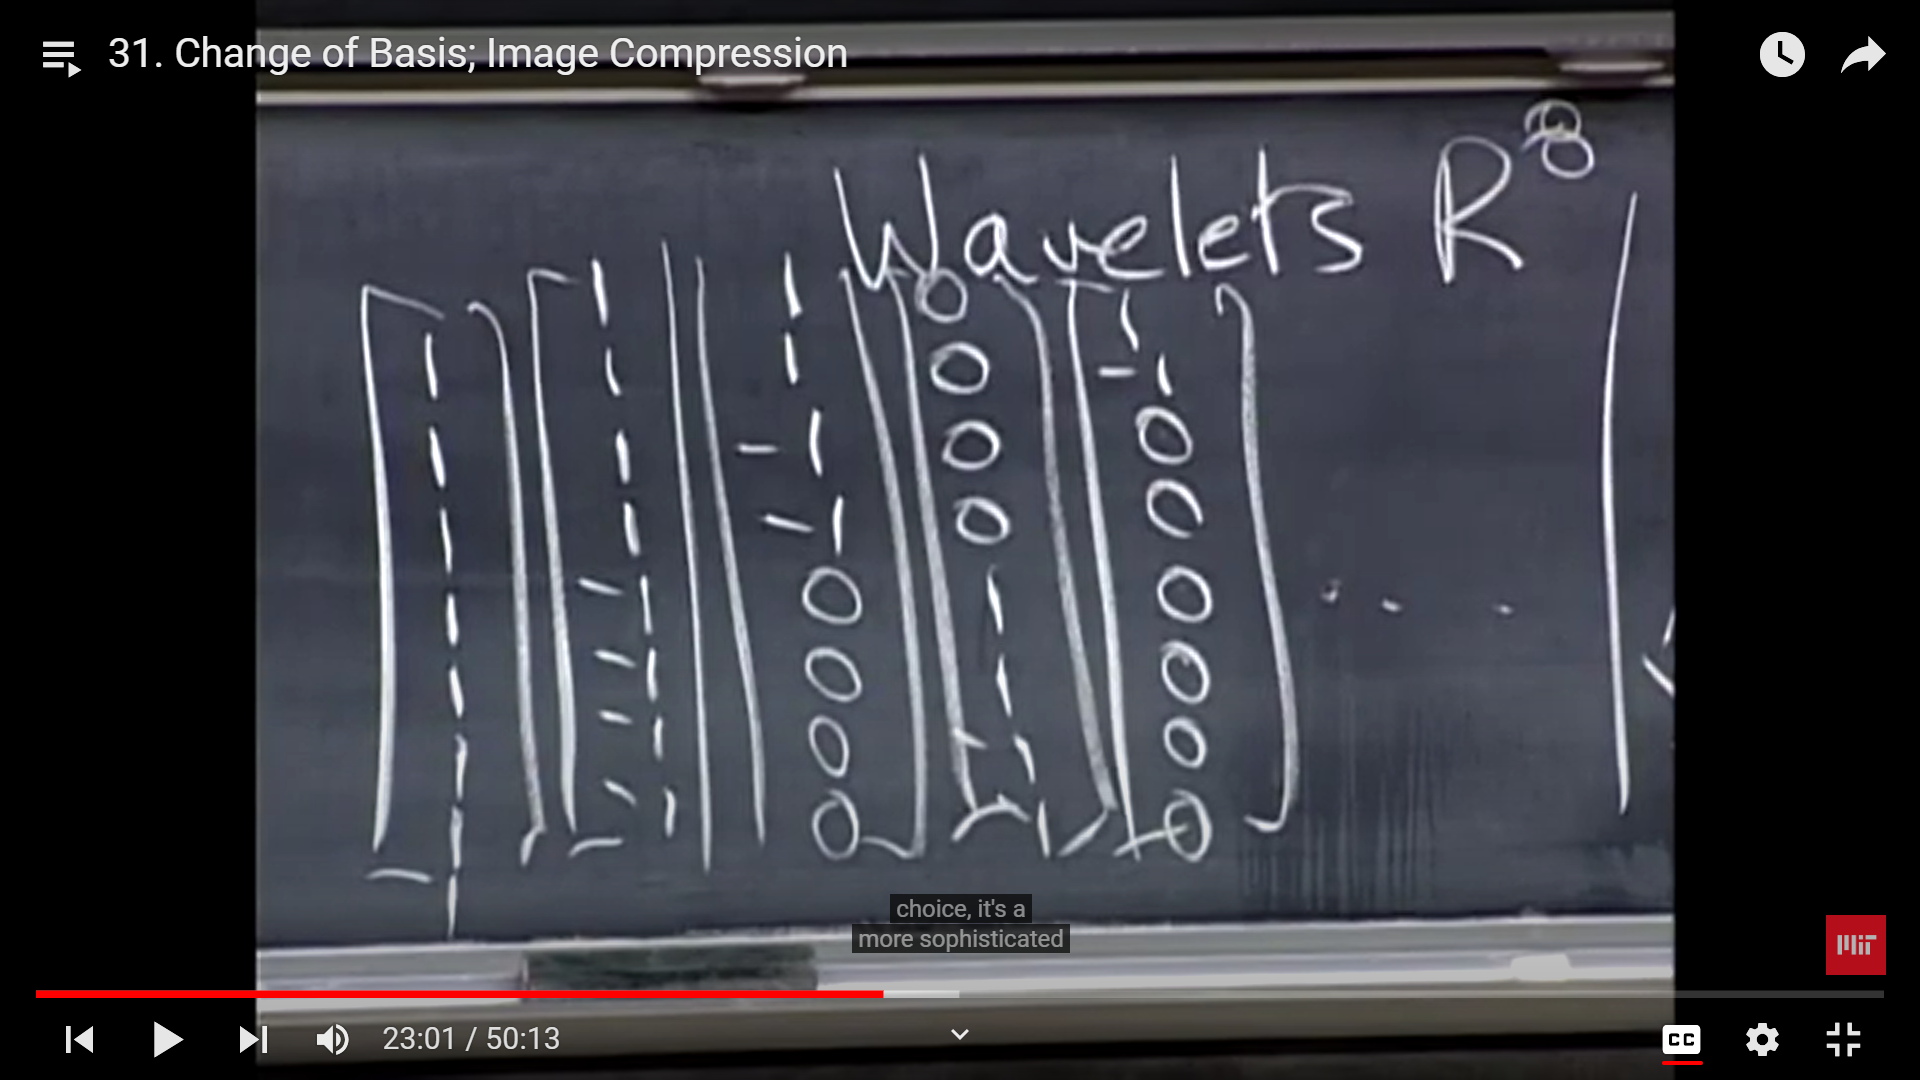 31. Change of Basis; Image Compression
Wavelets R⁸
1 1 1 0 1
1 1 1 0 -1
1 1 -1 0 0
1 1 -1 0 0
1 -1 0 1 0 . . .
1 -1 0 1 0
1 -1 0 -1 0
1 -1 0 -1 0
choice, it's a
more sophisticated
MiT
23:01 / 50:13
CC